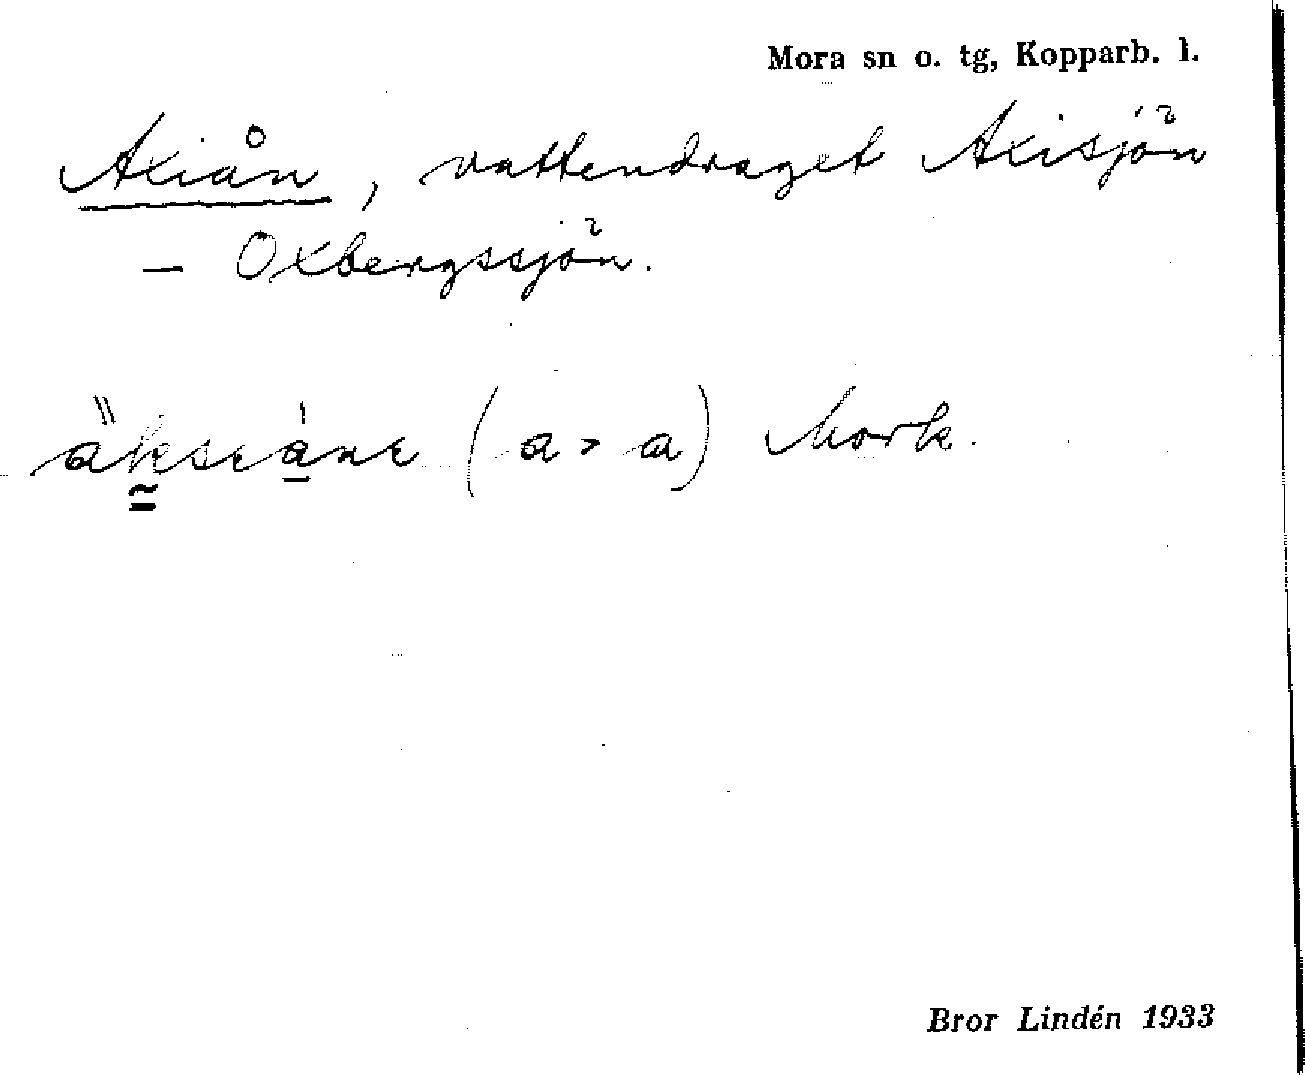 Mora sn o. tg, Kopparb. l.
Axiån, vattendraget Axisjön
— Oxbergssjön.
(a > a) Mork.
Bror Lindén 1933